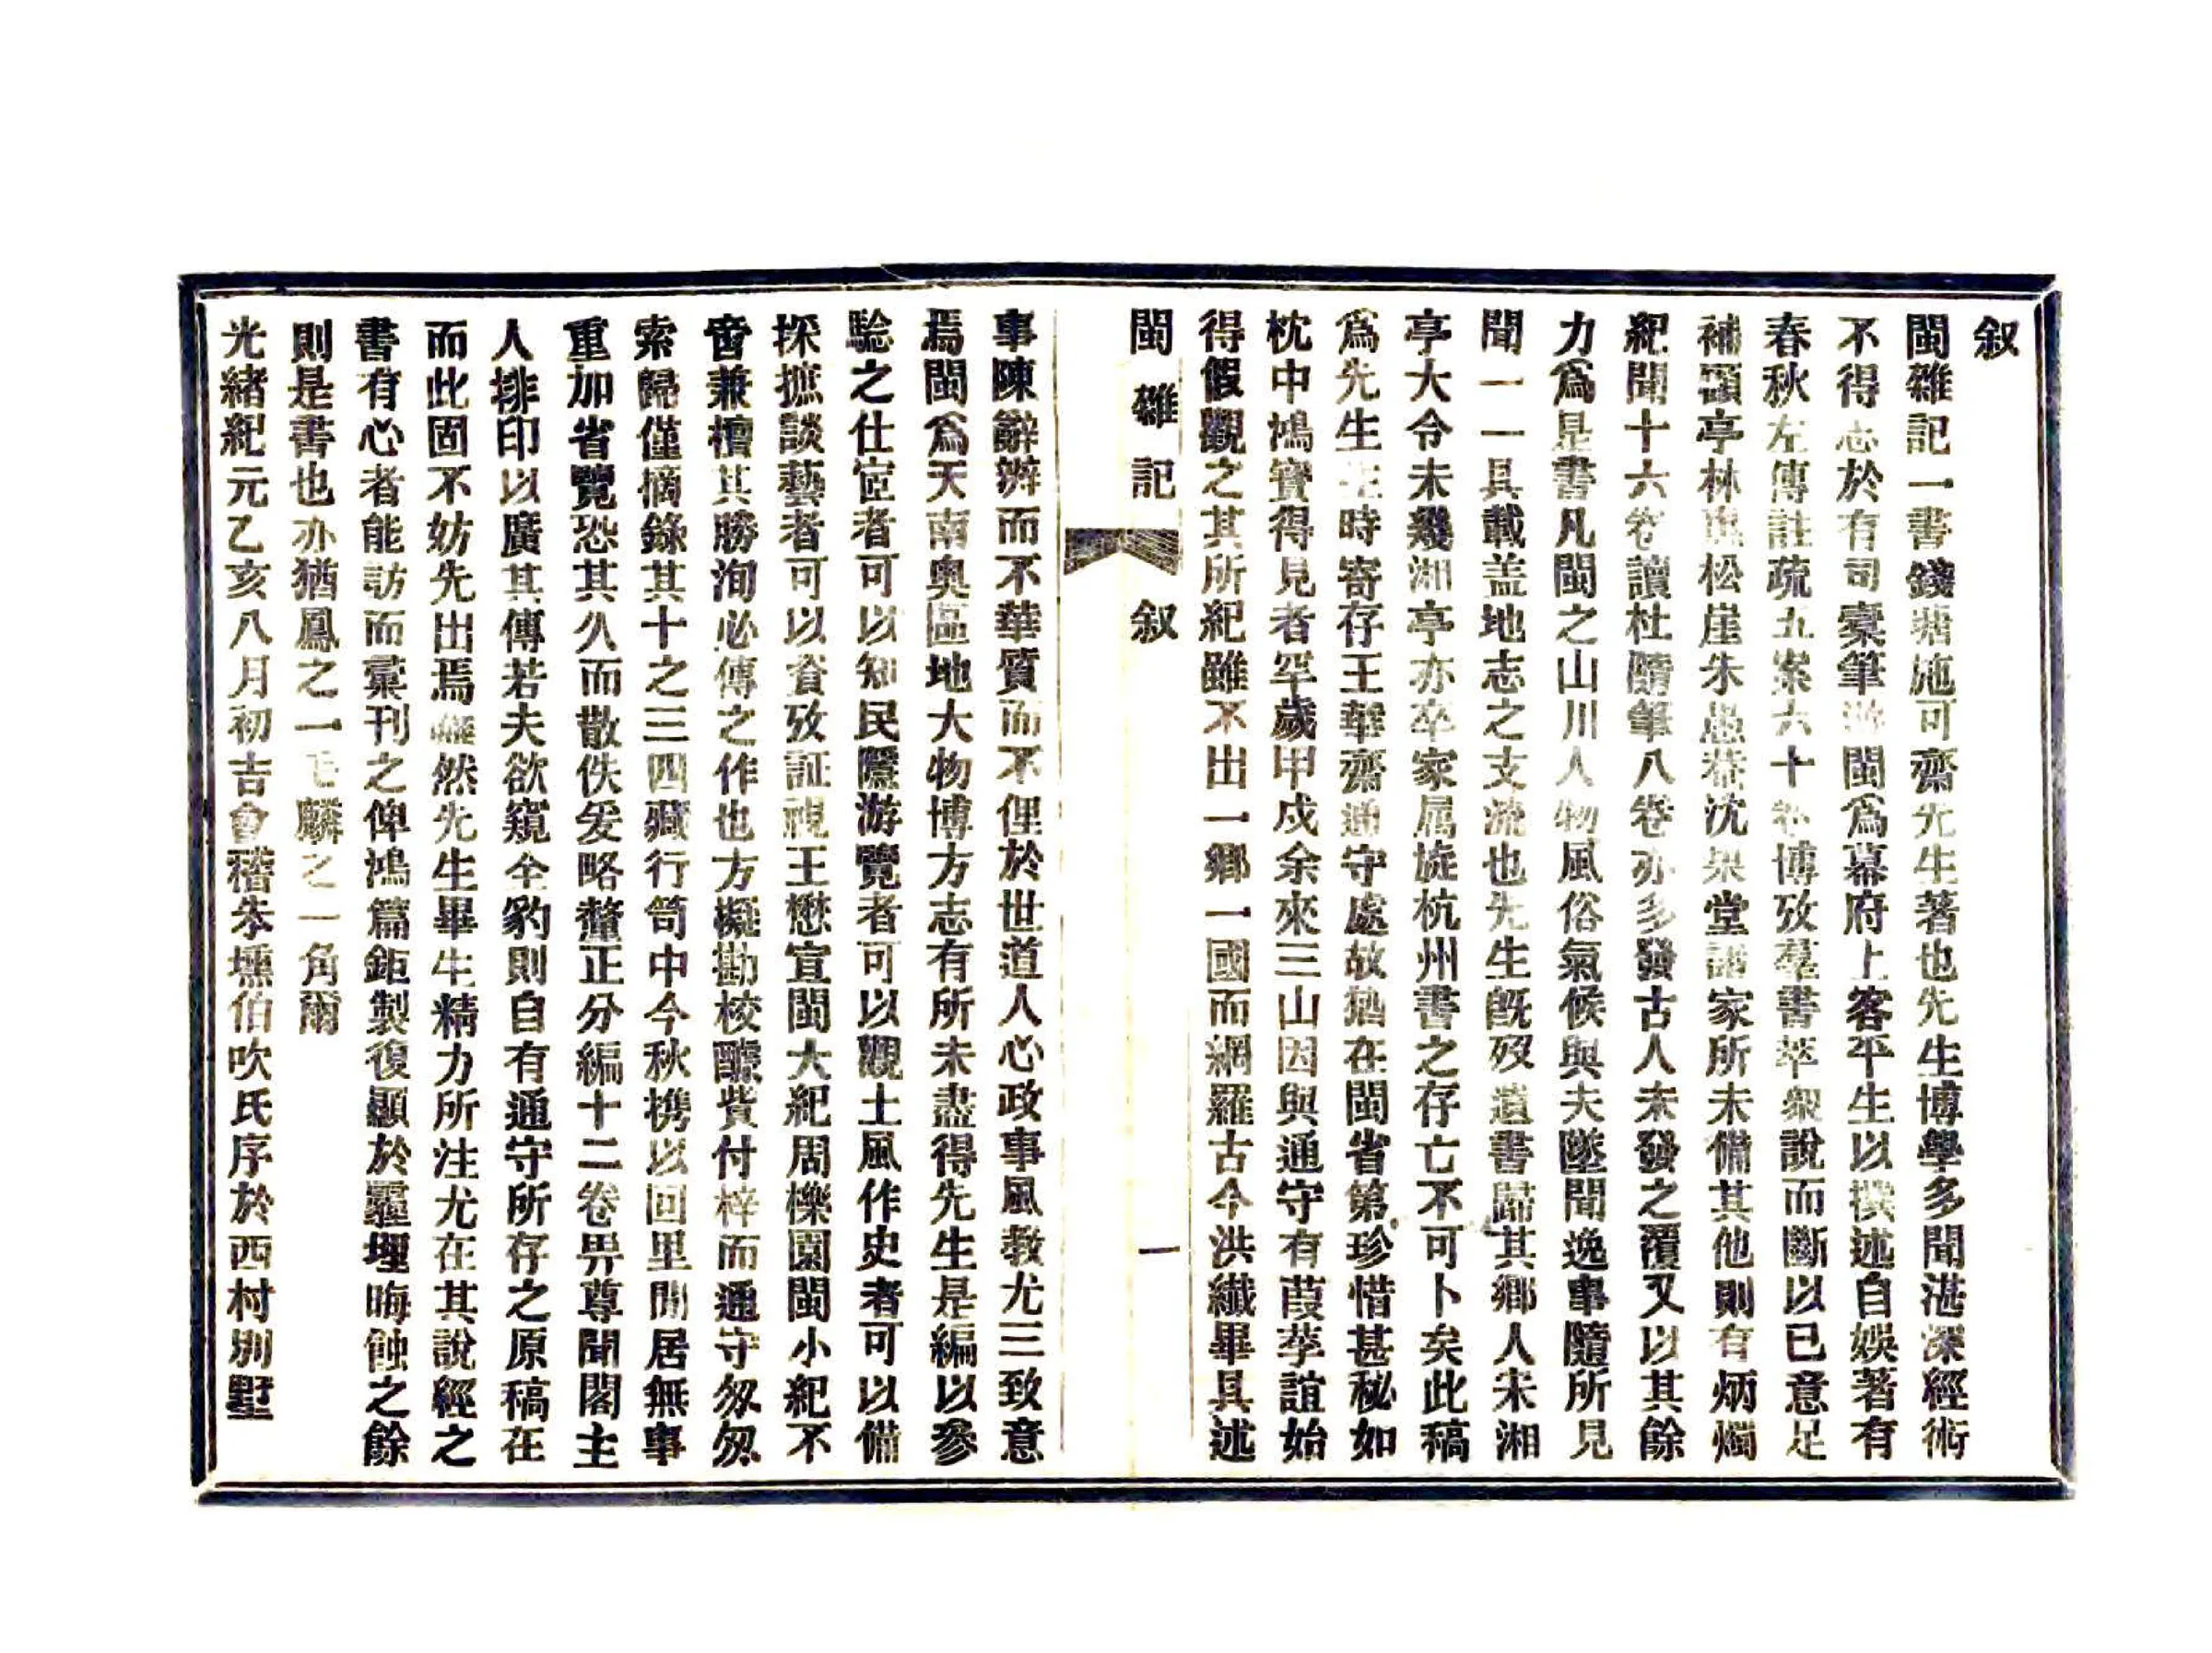 叙
閩雜記一書錢塘施可齋先生著也先生博學多聞湛深經術
不得志於有司槖筆游閩爲幕府上客平生以撰述自娛著有
春秋左傳註疏五案六十卷博攷羣書萃衆說而斷以已意足
補顧亭林惠松崖朱愚菴沈果堂諸家所未備其他則有炳燭
紀聞十六卷讀杜隨筆八卷亦多發古人未發之覆又以其餘
力爲是書凡閩之山川人物風俗氣候與夫墜聞逸事隨所見
聞一一具載盖地志之支流也先生旣歿遺書歸其鄉人朱湘
亭大令未幾湘亭亦卒家屬旋杭州書之存亡不可卜矣此稿
爲先生生時寄存王華齋通守處故猶在閩省第珍惜甚秘如
枕中鴻寶得見者罕歲甲戍余來三山因與通守有葭莩誼始
得假觀之其所紀雖不出一鄉一國而網羅古今洪纖畢具述
閩雜記 叙 一
事陳辭辨而不華質而不俚於世道人心政事風教尤三致意
焉閩爲天南奥區地大物博方志有所未盡得先生是編以參
驗之仕宦者可以知民隱游覽者可以觀土風作史者可以備
採摭談藝者可以資攷証視王懋宣閩大紀周櫟園閩小紀不
啻兼檀其勝洵必傳之作也方擬勘校醵貲付梓而通守匆匆
索歸僅摘錄其十之三四藏行笥中今秋携以回里閒居無事
重加省覽恐其久而散佚爰略釐正分編十二卷畀尊聞閣主
人排印以廣其傳若夫欲窺全豹則自有通守所存之原稿在
而此固不妨先出焉雖然先生畢生精力所注尤在其說經之
書有心者能訪而彙刊之俾鴻篇鉅製復顯於霾埋晦蝕之餘
則是書也亦猶鳳之一毛麟之一角爾
光緒紀元乙亥八月初吉會稽朱壎伯吹氏序於西村別墅